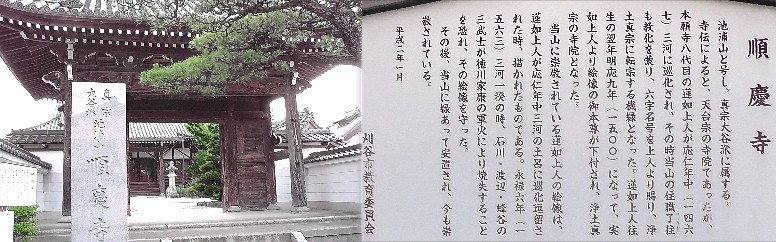 真宗
大谷派
池浦山
順慶寺
順慶寺
池浦山と号し、真宗大谷派に属する。
寺伝によると、天台宗の寺院であったが、
本願寺八代目の蓮如上人が応仁年中(一四六
七)三河に巡化され、その時当山の住職了住
も教化を蒙り、六字名号を上人より賜り、浄
土真宗に転宗する機縁となった。蓮如上人往
生の翌年明応九年(一五〇〇)になって、実
如上人より絵像の御本尊が下付され、浄土真
宗の寺院となった。
当山に崇敬されている蓮如上人の絵像は、
蓮如上人が応仁年中三河の土呂に巡化逗留さ
れた時、描かれたものである。永禄六年(一
五六三)三河一揆の時、石川・渡辺・蜂谷の
三武士が徳川家康の軍火により焼失すること
を恐れ、その絵像を守った。
その後、当山に縁あって安置され、今も崇
敬されている。
平成二年一月
刈谷市教育委員会